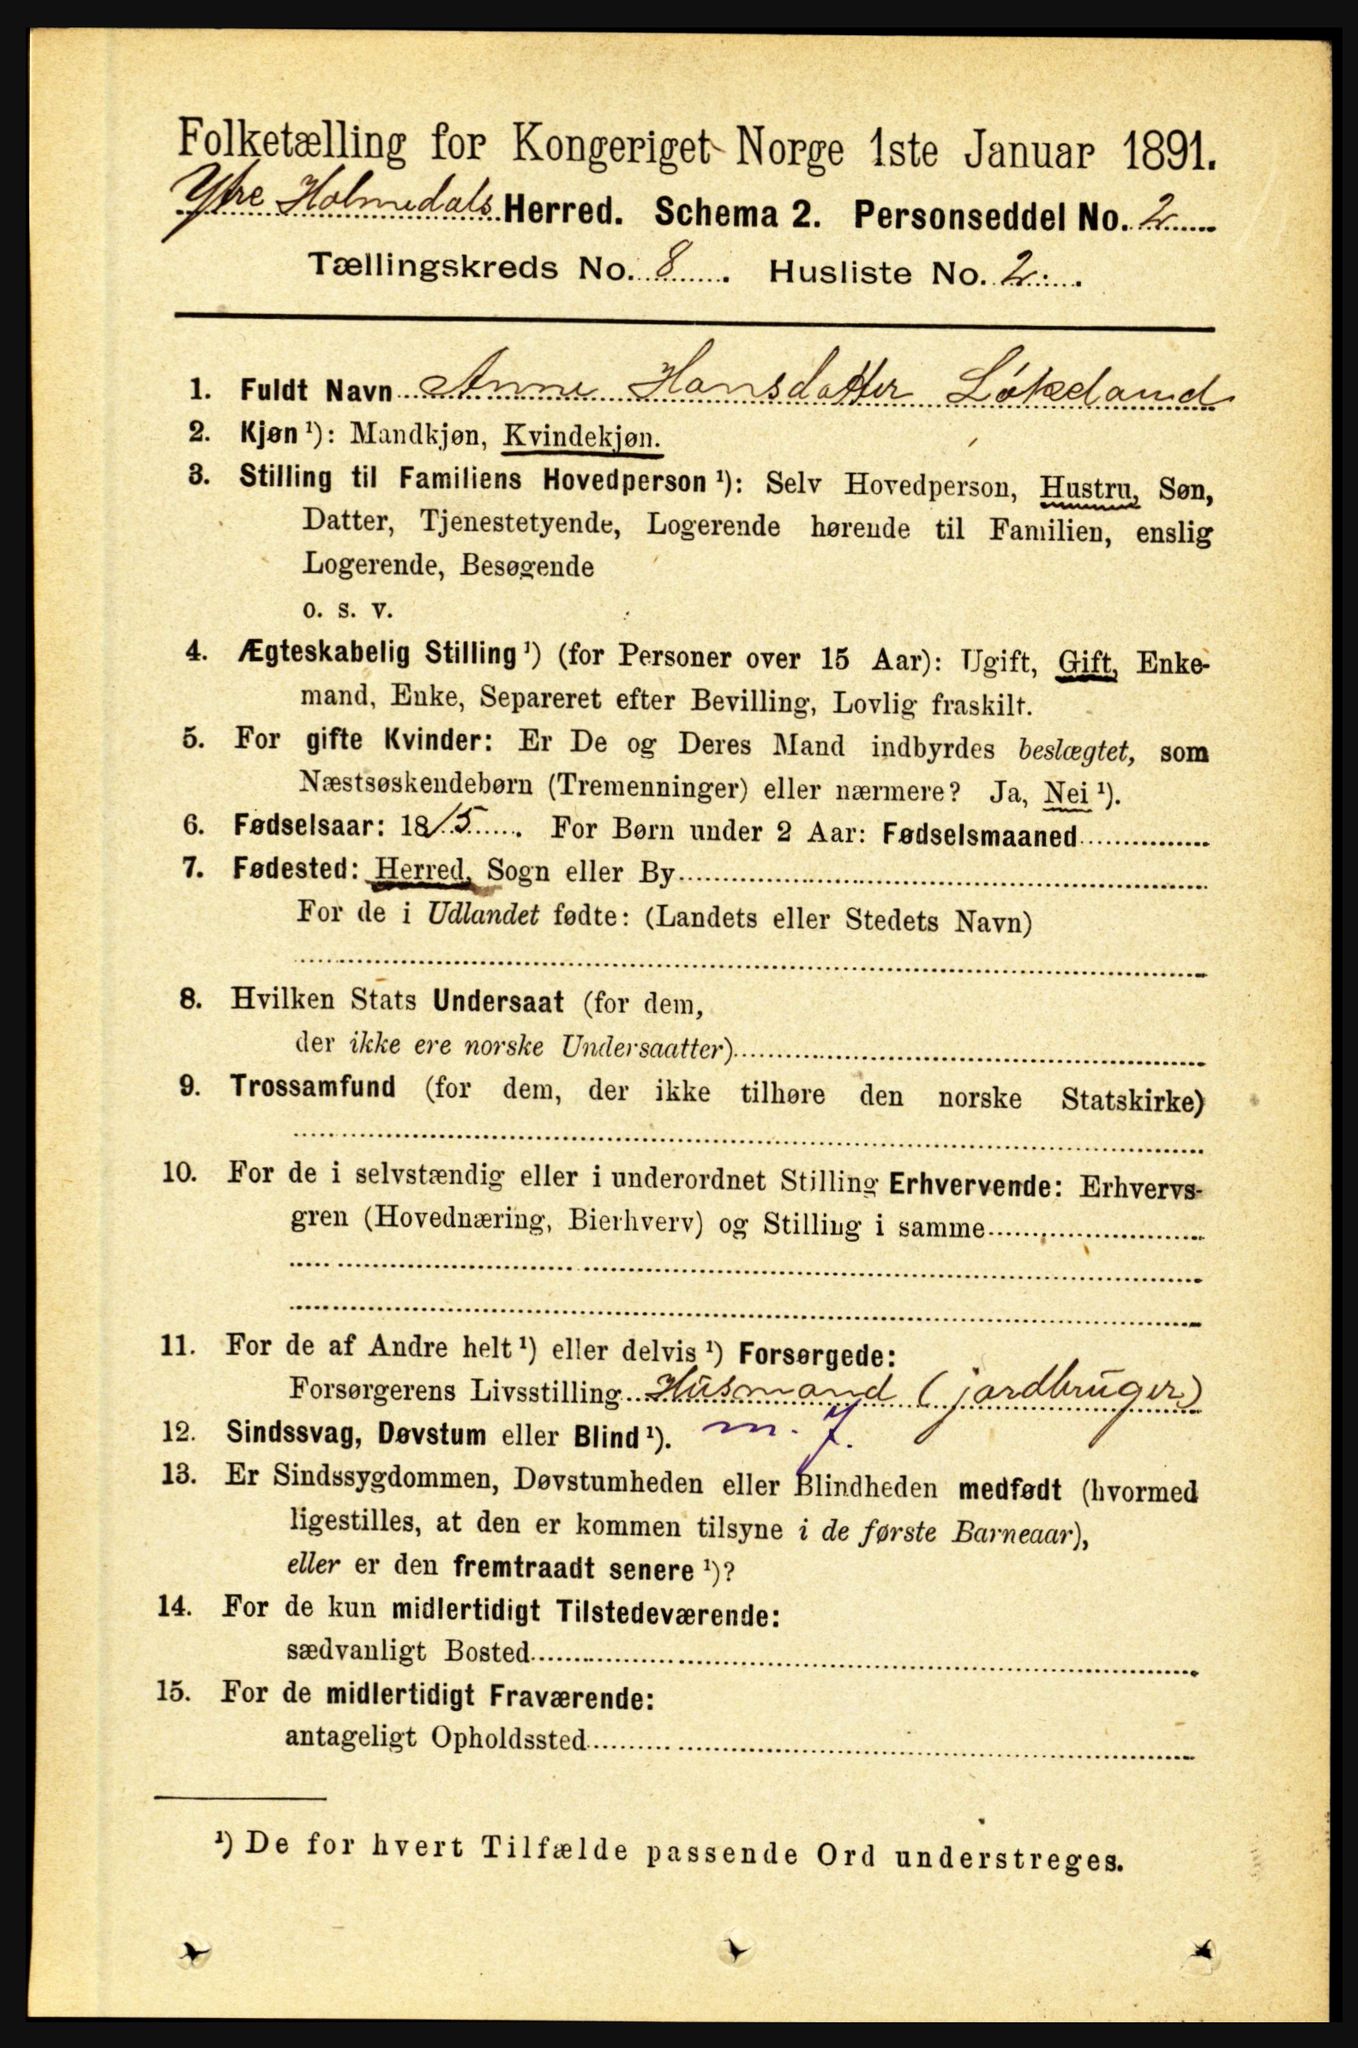 Folketælling for Kongeriget Norge 1ste Januar 1891.
Ytre Holmedals Herred. Schema 2. Personseddel No. 2
Tællingskreds No. 8. Husliste No. 2.
1. Fuldt Navn Anne Hansdatter Løkeland
2. Kjøn ¹): Mandkjøn, Kvindekjøn.
3. Stilling til Familiens Hovedperson ¹): Selv Hovedperson, Hustru, Søn,
Datter, Tjenestetyende, Logerende hørende til Familien, enslig
Logerende, Besøgende
o. s. v.
4. Ægteskabelig Stilling ¹) (for Personer over 15 Aar): Ugift, Gift, Enke-
mand, Enke, Separeret efter Bevilling, Lovlig fraskilt.
5. For gifte Kvinder: Er De og Deres Mand indbyrdes beslægtet, som
Næstsøskendebørn (Tremenninger) eller nærmere? Ja, Nei ¹).
6. Fødselsaar: 1815. For Børn under 2 Aar: Fødselsmaaned
7. Fødested: Herred, Sogn eller By
For de i Udlandet fødte: (Landets eller Stedets Navn)
8. Hvilken Stats Undersaat (for dem,
der ikke ere norske Undersaatter)
9. Trossamfund (for dem, der ikke tilhøre den norske Statskirke)
10. For de i selvstændig eller i underordnet Stilling Erhvervende: Erhvervs-
gren (Hovednæring, Bierhverv) og Stilling i samme
11. For de af Andre helt ¹) eller delvis ¹) Forsørgede:
Forsørgerens Livsstilling Husmand (jordbruger)
12. Sindssvag, Døvstum eller Blind ¹). m. J.
13. Er Sindssygdommen, Døvstumheden eller Blindheden medfødt (hvormed
ligestilles, at den er kommen tilsyne i de første Barneaar),
eller er den fremtraadt senere ¹)?
14. For de kun midlertidigt Tilstedeværende:
sædvanligt Bosted
15. For de midlertidigt Fraværende:
antageligt Opholdssted
¹) De for hvert Tilfælde passende Ord understreges.